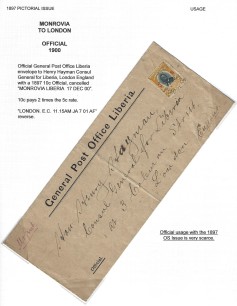 1897 PICTORIAL ISSUE
USAGE
MONROVIA
TO LONDON
OFFICIAL
1900
Official General Post Office Liberia
envelope to Henry Hayman Consul
General for Liberia, London England
with a 1897 10c Official, cancelled
"MONROVIA LIBERIA 17 DEC 00".
10c pays 2 times the 5c rate.
"LONDON. E.C. 11.15AM JA 7 01 AF"
reverse.
General Post Office Liberia
Hon Henry Hayman
Consul General for Liberia
London
Official usage with the 1897
OS Issue is very scarce.